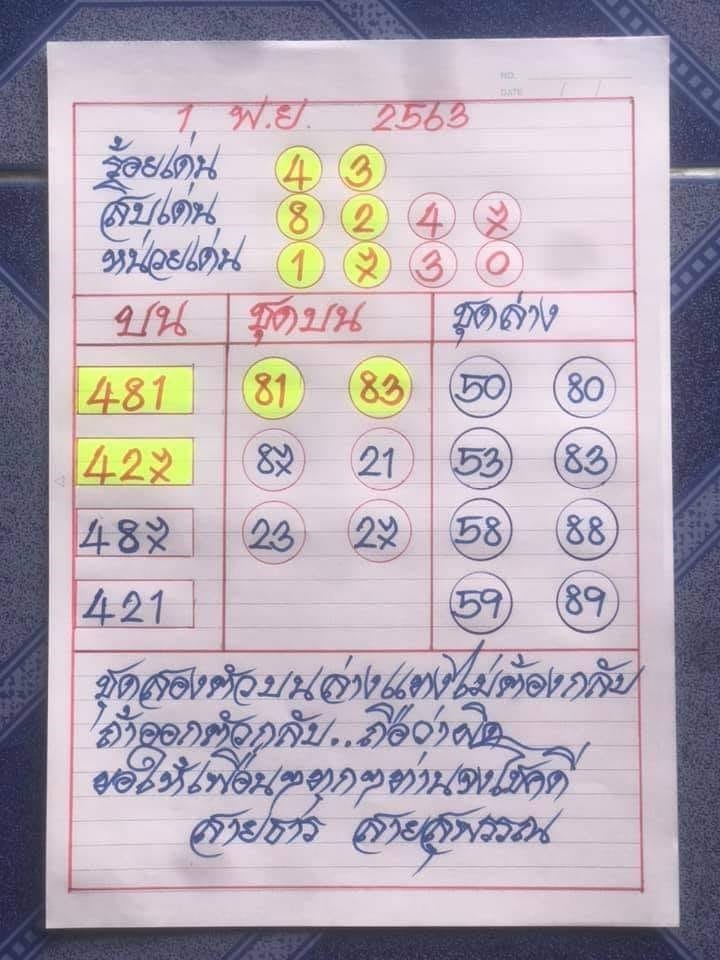 NO.
DATE / /
1 พ.ย. 2563
ร้อยเด่น 4 3
สิบเด่น 8 2 4 7
หน่วยเด่น 1 7 3 0
บน ชุดบน ชุดล่าง
481 81 83 50 80
427 87 21 53 83
487 23 27 58 88
421 59 89
ชุดสองตัวบนล่างแทงไม่ต้องกลับ
ถ้าออกตัวกลับ..ถือว่าผิด
ขอให้เพื่อนๆทุกๆท่านจงโชคดี
สายธาร สายสุพรรณ